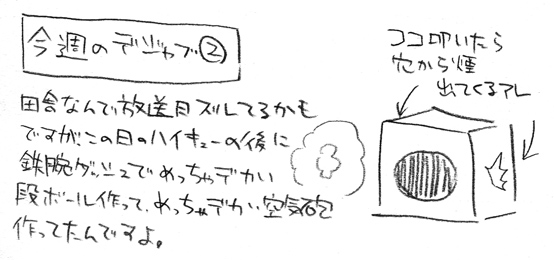 今週のデジャブ②
田舎なんで放送日ズレてるかも
ですが、この日のハイキューの後に
鉄腕ダッシュでめっちゃデカい
段ボール作って、めっちゃデカい空気砲
作ってたんですよ。
ココ叩いたら
穴から煙
出てくるアレ